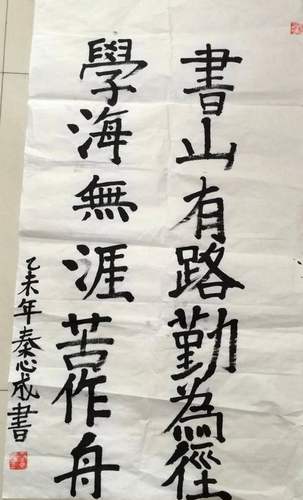 書山有路勤為徑
學海無涯苦作舟
乙未年秦心成書